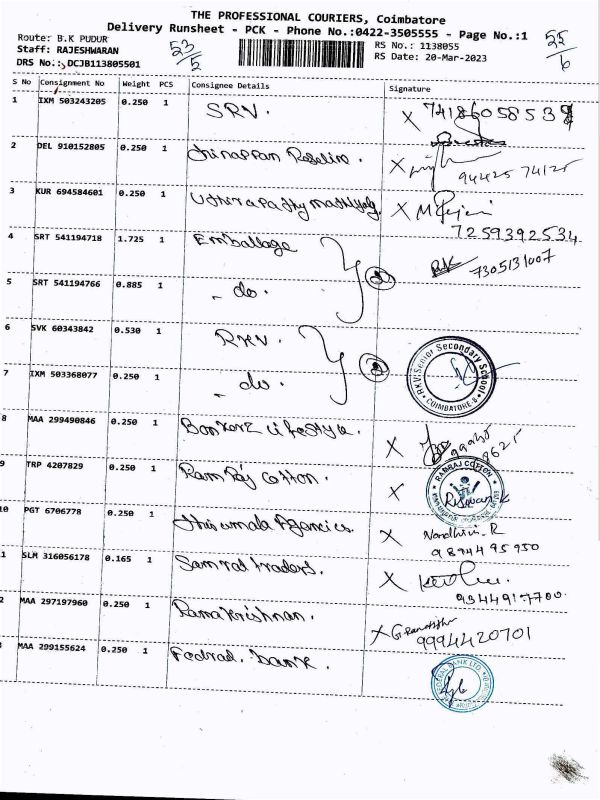 THE PROFESSIONAL COURIERS, Coimbatore
Delivery Runsheet - PCK - Phone No.:0422-3505555 - Page No.:1
Route: B.K PUDUR
Staff: RAJESHWARAN
DRS No.: DCJB113805501
53/5
RS No.: 1138055
RS Date: 20-Mar-2023
55/6
S No Consignment No Weight PCS Consignee Details Signature
1 IXM 503243205 0.250 1 SRV. X 7418605853
2 DEL 910152805 0.250 1 X 94425 74125
3 KUR 694584601 0.250 1 X
7259392534
4 SRT 541194718 1.725 1 Emballage RK 7305131007
5 SRT 541194766 0.885 1 - do. 2
6 SVK 60343842 0.530 1 RKV. R.K.V. Senior Secondary School COIMBATORE-8
7 IXM 503368077 0.250 1 - do. 2
8 MAA 299490846 0.250 1 Lifestyle. X
9 TRP 4207829 0.250 1 Ram Raj Cotton. X RAMRAJ COTTON
10 PGT 6706778 0.250 1 Thirumala Agencies. X Nandhini. R
9894495950
1 SLM 316056178 0.165 1 Samrat traders. X
9344917700.
2 MAA 297197960 0.250 1 Ramakrishnan. X
9994420701
MAA 299155624 0.250 1 Fedral. Bank. FEDERAL BANK LTD.